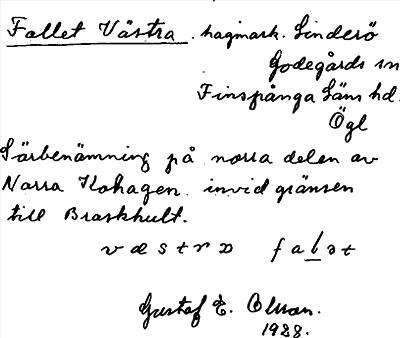 Fallet Västra . hagmark. Sinderö
Godegårds sn
Finspånga Läns hd.
Ögl
Särbenämning på norra delen av
Norra Kohagen. invid gränsen
till Braskhult.
v æ s t r ɔ f a l ə t
Gustaf E. Olsson.
1928.